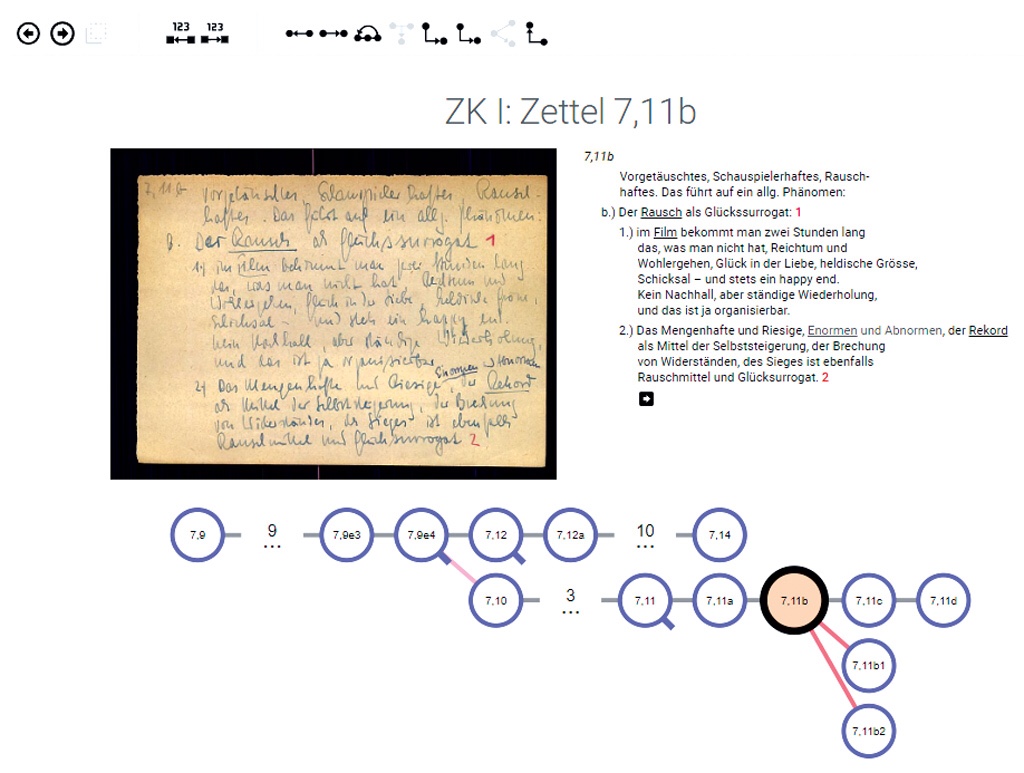 123 123
ZK I: Zettel 7,11b
7,11b
Vorgetäuschtes, Schauspielerhaftes, Rausch-
haftes. Das führt auf ein allg. Phänomen:
b. Der Rausch als Glückssurrogat 1
1) im Film bekommt man zwei Stunden lang
das, was man nicht hat, Reichtum und
Wohlergehen, Glück in der Liebe, heldische Grösse,
Schicksal – und stets ein happy end.
Kein Nachhall, aber ständige Wiederholung,
und das ist ja organisierbar.
Enormen u Abnormen
2) Das Mengenhafte und Riesige, der Rekord
als Mittel der Selbststeigerung, der Brechung
von Widerständen, des Sieges ist ebenfalls
Rauschmittel und Glücksurrogat 2
7,11b
Vorgetäuschtes, Schauspielerhaftes, Rausch-
haftes. Das führt auf ein allg. Phänomen:
b.) Der Rausch als Glückssurrogat: 1
1.) im Film bekommt man zwei Stunden lang
das, was man nicht hat, Reichtum und
Wohlergehen, Glück in der Liebe, heldische Grösse,
Schicksal – und stets ein happy end.
Kein Nachhall, aber ständige Wiederholung,
und das ist ja organisierbar.
2.) Das Mengenhafte und Riesige, Enormen und Abnormen, der Rekord
als Mittel der Selbststeigerung, der Brechung
von Widerständen, des Sieges ist ebenfalls
Rauschmittel und Glücksurrogat. 2
7,9 9 ... 7,9e3 7,9e4 7,12 7,12a 10 ... 7,14
7,10 3 ... 7,11 7,11a 7,11b 7,11c 7,11d
7,11b1
7,11b2